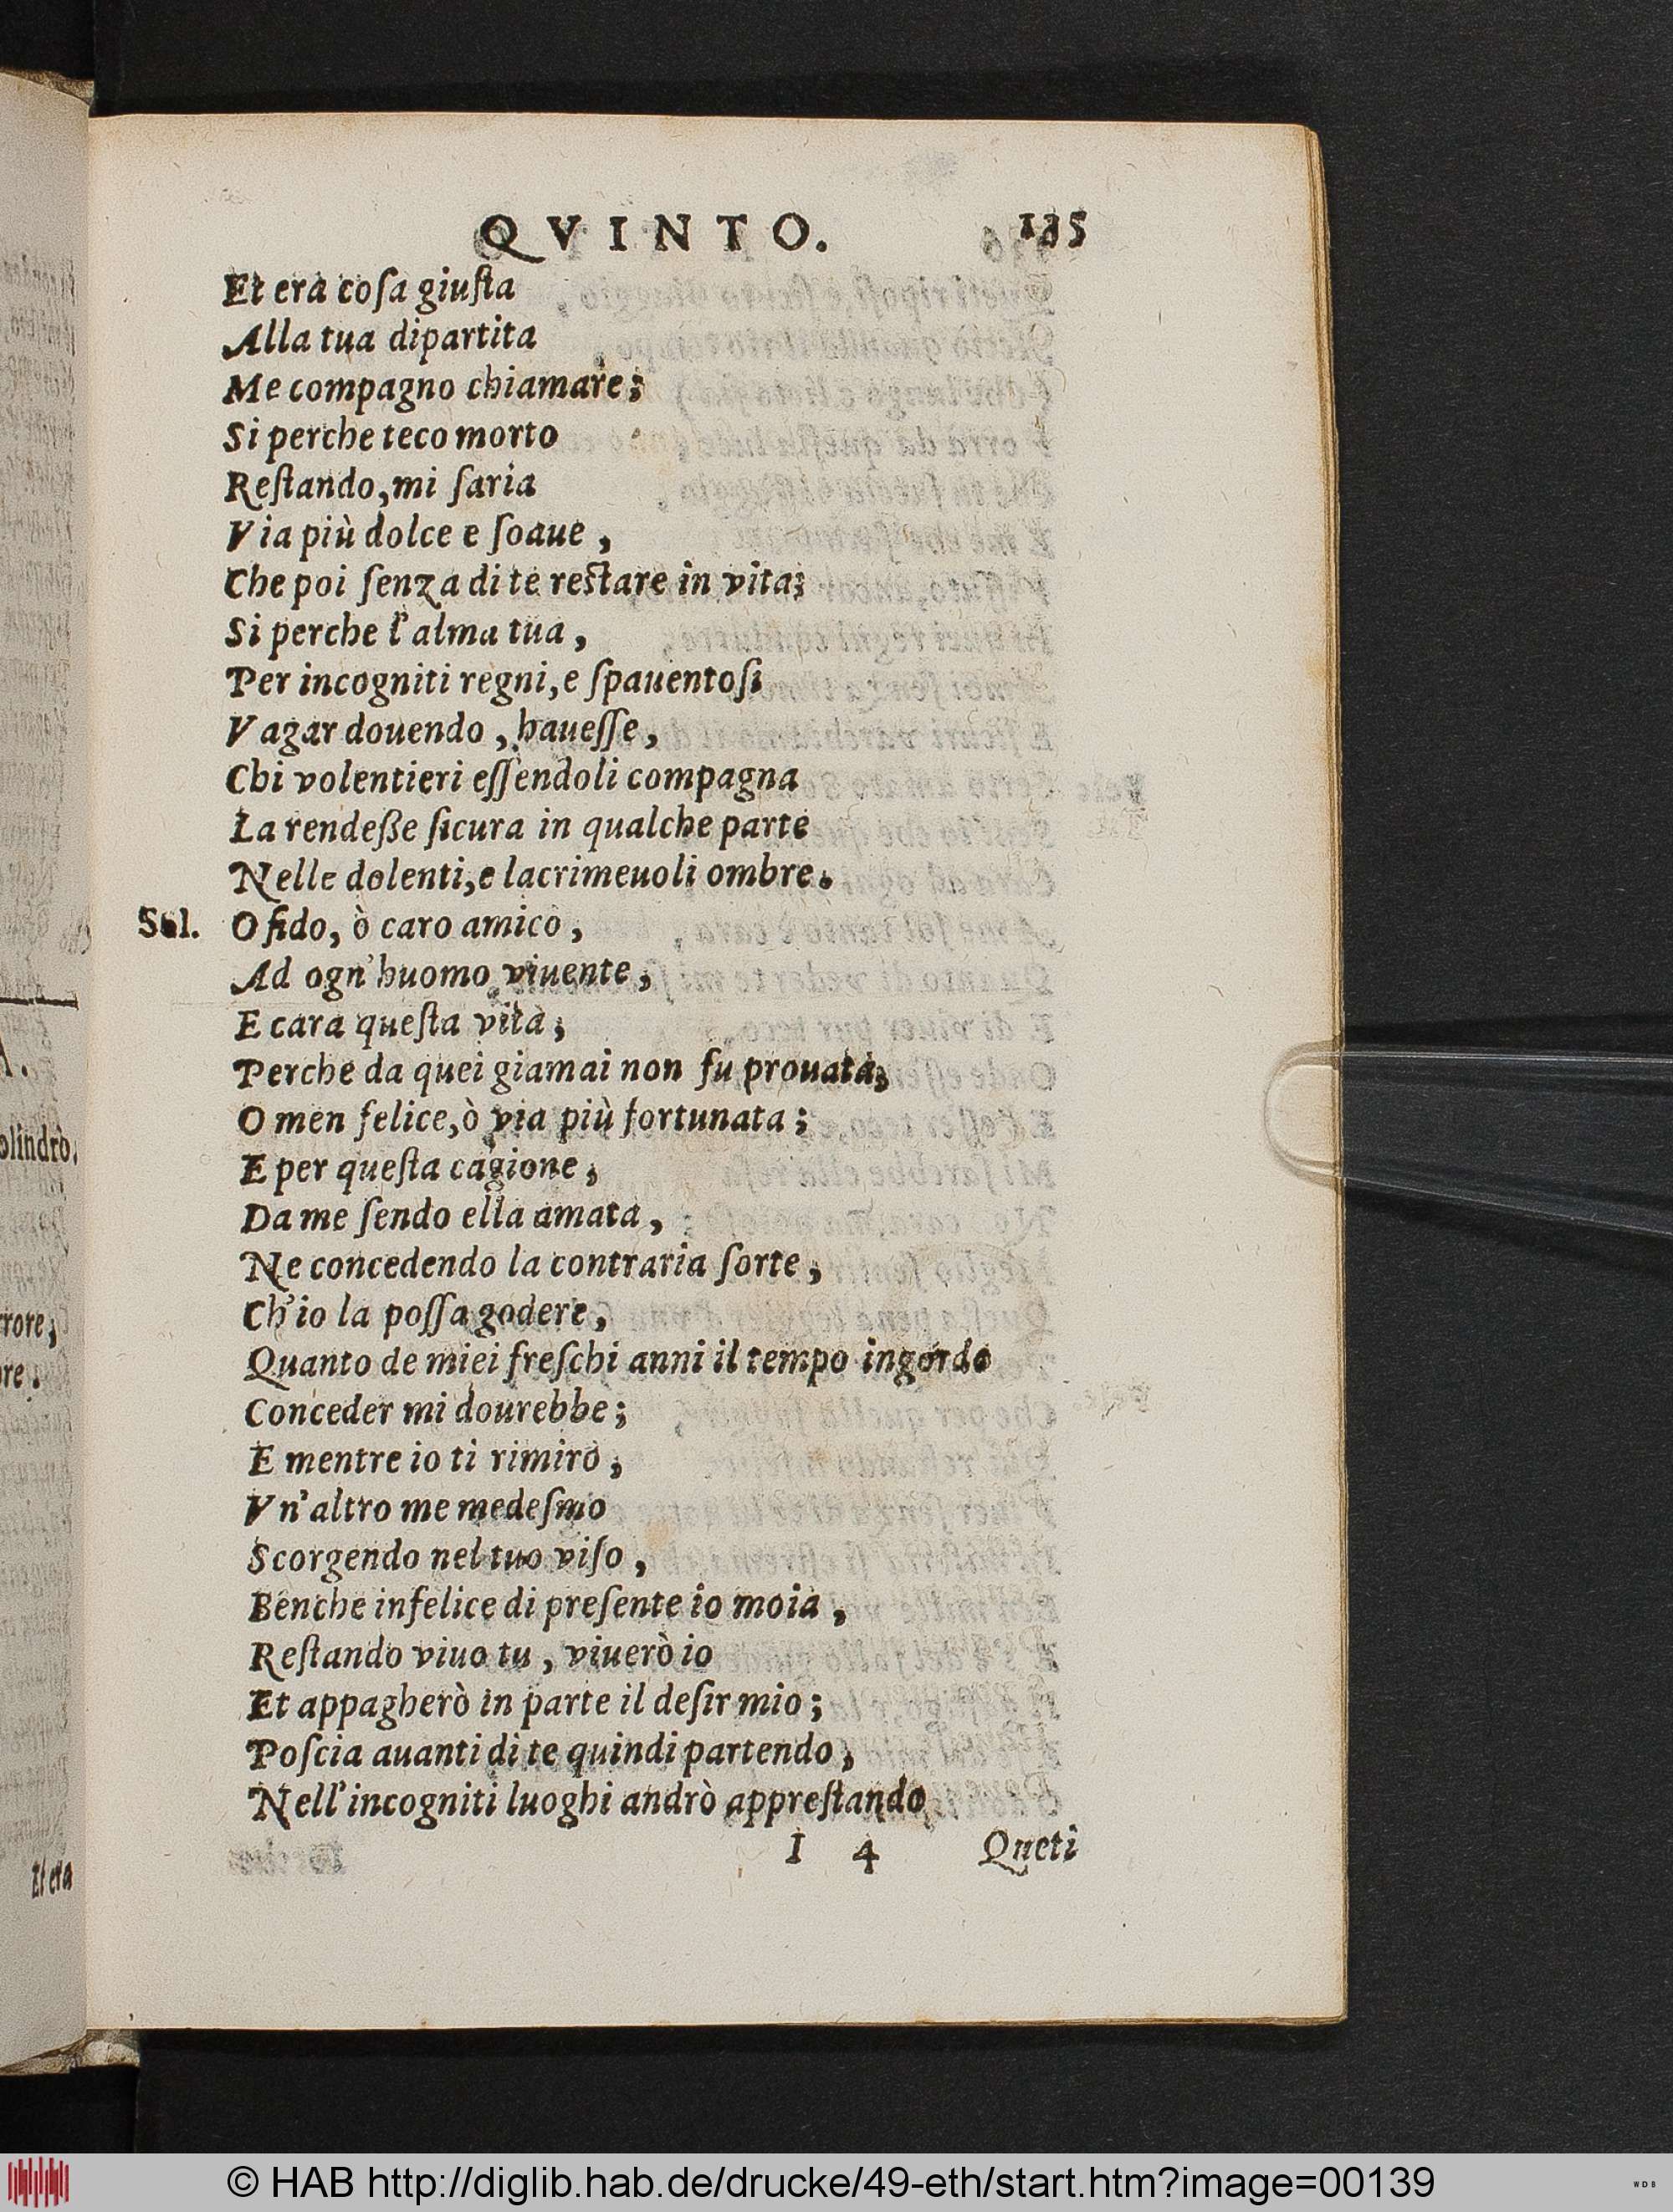 QVINTO. 135
Et era coſa giuſta
Alla tua dipartita
Me compagno chiamare;
Si perche teco morto
Reſtando, mi ſaria
Via più dolce e ſoaue,
Che poi ſenza di te reſtare in vita;
Si perche l'alma tua,
Per incogniti regni, e ſpauentoſi
Vagar douendo, haueſſe,
Chi volentieri eſſendoli compagna
La rendeße ſicura in qualche parte
Nelle dolenti, e lacrimeuoli ombre.
Sol. O fido, ò caro amico,
Ad ogn'huomo viuente,
E cara queſta vita;
Perche da quei giamai non fu prouata;
O men felice, ò via più fortunata;
E per queſta cagione;
Da me ſendo ella amata,
Ne concedendo la contraria ſorte,
Ch'io la poſſa godere,
Quanto de miei freſchi anni il tempo ingordo
Conceder mi dourebbe;
E mentre io ti rimiro,
Vn'altro me medeſmo
Scorgendo nel tuo viſo,
Benche infelice di preſente io moia,
Reſtando viuo tu, viuerò io
Et appagherò in parte il deſir mio;
Poſcia auanti di te quindi partendo,
Nell'incogniti luoghi andrò appreſtando
I 4 Queti
A.
olindro.
rore;
re.
Et era
© HAB http://diglib.hab.de/drucke/49-eth/start.htm?image=00139
WDB